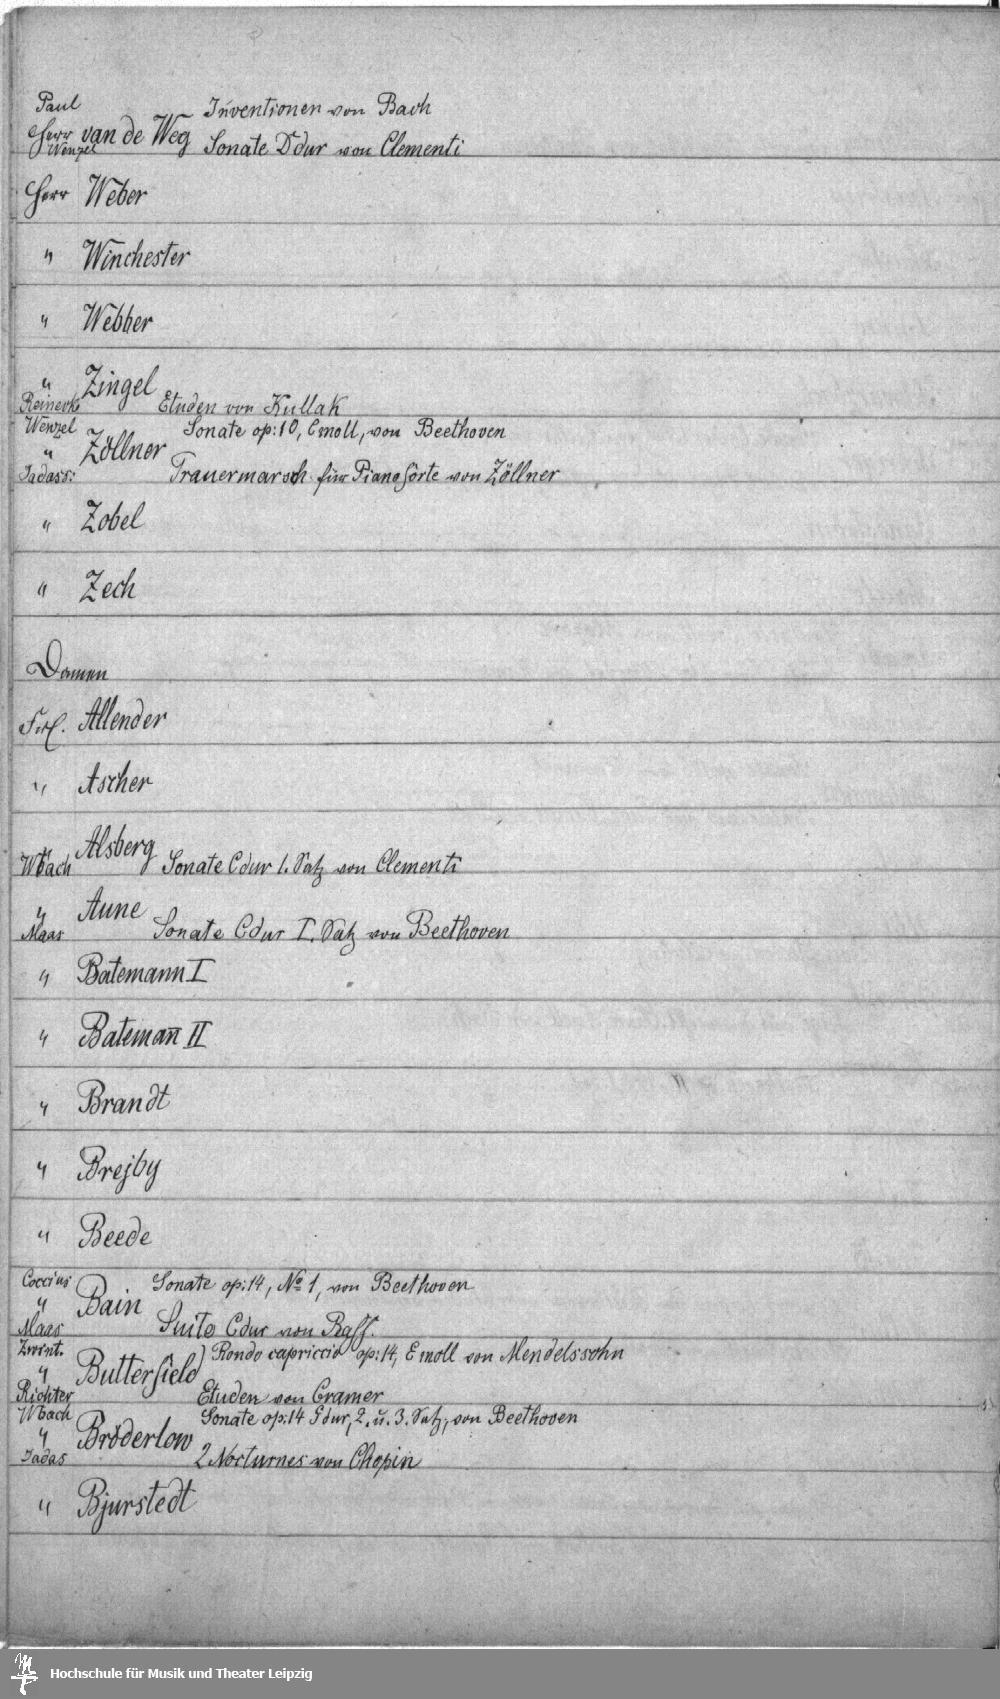 Paul Inventionen von Bach
Herr van de Weg
Wenzel Sonate Ddur von Clementi
Herr Weber
" Winchester
" Webber
" Zingel
Reineck Etuden von Kullak
Wenzel Sonate op:10, Cmoll, von Beethoven
" Zöllner
Jadass: Trauermarsch für Pianoforte von Zöllner
" Zobel
" Zech
Damen
Frl. Allender
" Ascher
" Alsberg
Wbach Sonate Cdur 1. Satz von Clementi
" Aune
Maas Sonate Cdur I. Satz von Beethoven
" Batemann I
" Batemañ II
" Brandt
" Brejby
" Beede
Coccius Sonate op:14, No 1, von Beethoven
" Bain
Maas Suite Cdur von Raff.
Zwint. Rondo capriccio op:14, Emoll von Mendelssohn
" Butterfield
Richter Etuden von Cramer
Wbach Sonate op:14 Gdur, 2. u. 3. Satz, von Beethoven
" Bröderlow
Jadas 2 Nocturnes von Chopin
" Bjurstedt
Hochschule für Musik und Theater Leipzig